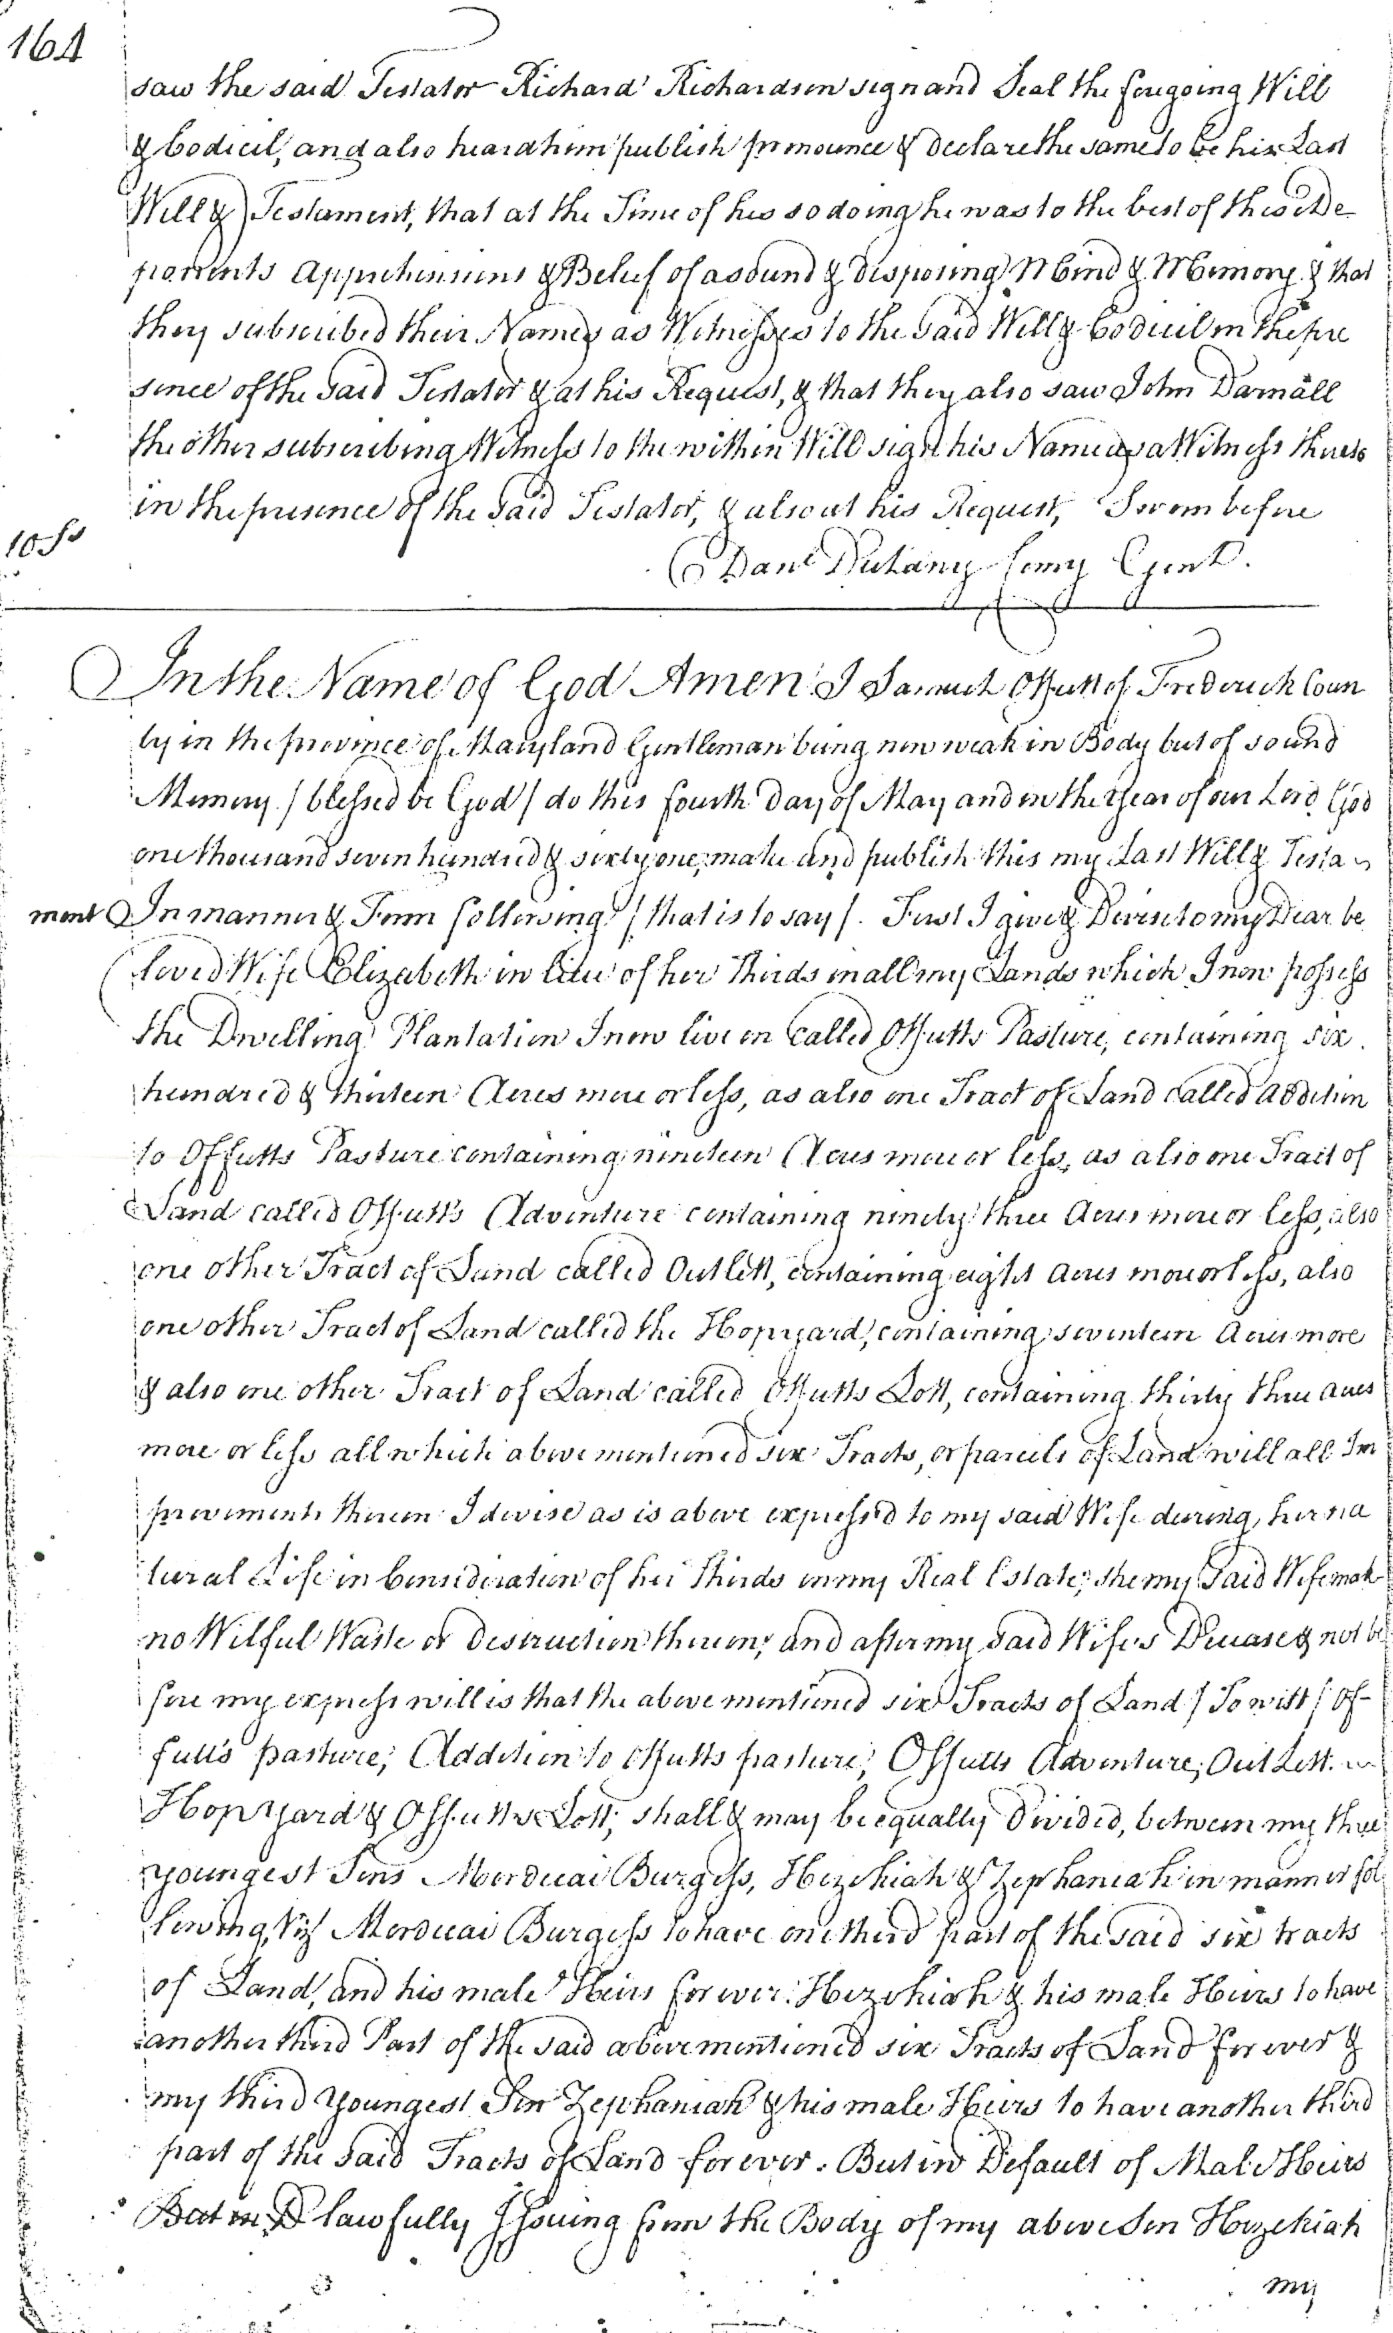 164
saw the said Testator Richard Richardson sign and Seal the foregoing Will
& Codicil, and also heard him publish pronounce & declare the same to be his Last
Will & Testament, that at the Time of his so doing he was to the best of these De
ponents Apprehensions & Belief of a sound & disposing Mind & Memory & that
they subscribed their Names as Witnesses to the said Will & Codicil in the pre
sence of the said Testator & at his Request, & that they also saw John Darnall
the other subscribing Witness to the within Will sign his Name as a Witness thereto
in the presence of the said Testator, & also at his Request, Sworn before
Danl Dulany Comy Genl.
In the Name of God Amen I Samuel Offutt of Frederick Coun
ty in the province of Maryland Gentleman being now weak in Body but of sound
Memory / blessed be God / do this fourth Day of May and in the Year of our Lord God
one thousand seven hundred & sixty one, make and publish this my Last Will & Testa
ment In manner & Form following / that is to say /. First I give & Devise to my Dear be
loved Wife Elizabeth in lieu of her Thirds in all my Lands which I now possess
the Dwelling Plantation I now live on called Offutts Pasture, containing six
hundred & thirteen Acres more or less, as also one Tract of Land called Addition
to Offutts Pasture containing nineteen Acres more or less, as also one Tract of
Land called Offutt's Adventure containing ninety three Acres more or less, also
one other Tract of Land called Outlett, containing eight Acres more or less, also
one other Tract of Land called the Hopyard, containing seventeen Acres more
& also one other Tract of Land called Offutts Lott, containing thirty three acres
more or less all which above mentioned six Tracts, or parcels of Land will all Im
provements thereon I devise as is above express'd to my said Wife during her na
tural Life in Consideration of her Thirds in my Real Estate; she my said Wife mak
no Wilful Waste or destruction thereon; and after my said Wife's Decease & not be
fore my express will is that the above mentioned six Tracts of Land / To witt / Of-
futt's pasture; Addition to Offutts pasture; Offutts Adventure; Out Lett.
Hopyard & Offutts Lott; shall & may be equally Divided, between my three
youngest Sons Mordecai Burgess, Hezekiah & Zephaniah in manner fol
lowing, Viz Mordecai Burgess to have one third part of the said six tracts
of Land, and his male Heirs forever. Hezekiah & his male Heirs to have
another third Part of the said above mentioned six Tracts of Land forever &
my third youngest Son Zephaniah & his male Heirs to have another third
part of the said Tracts of Land forever. But in Default of Male Heirs
But in D lawfully Issuing from the Body of my above Son Hezekiah
my